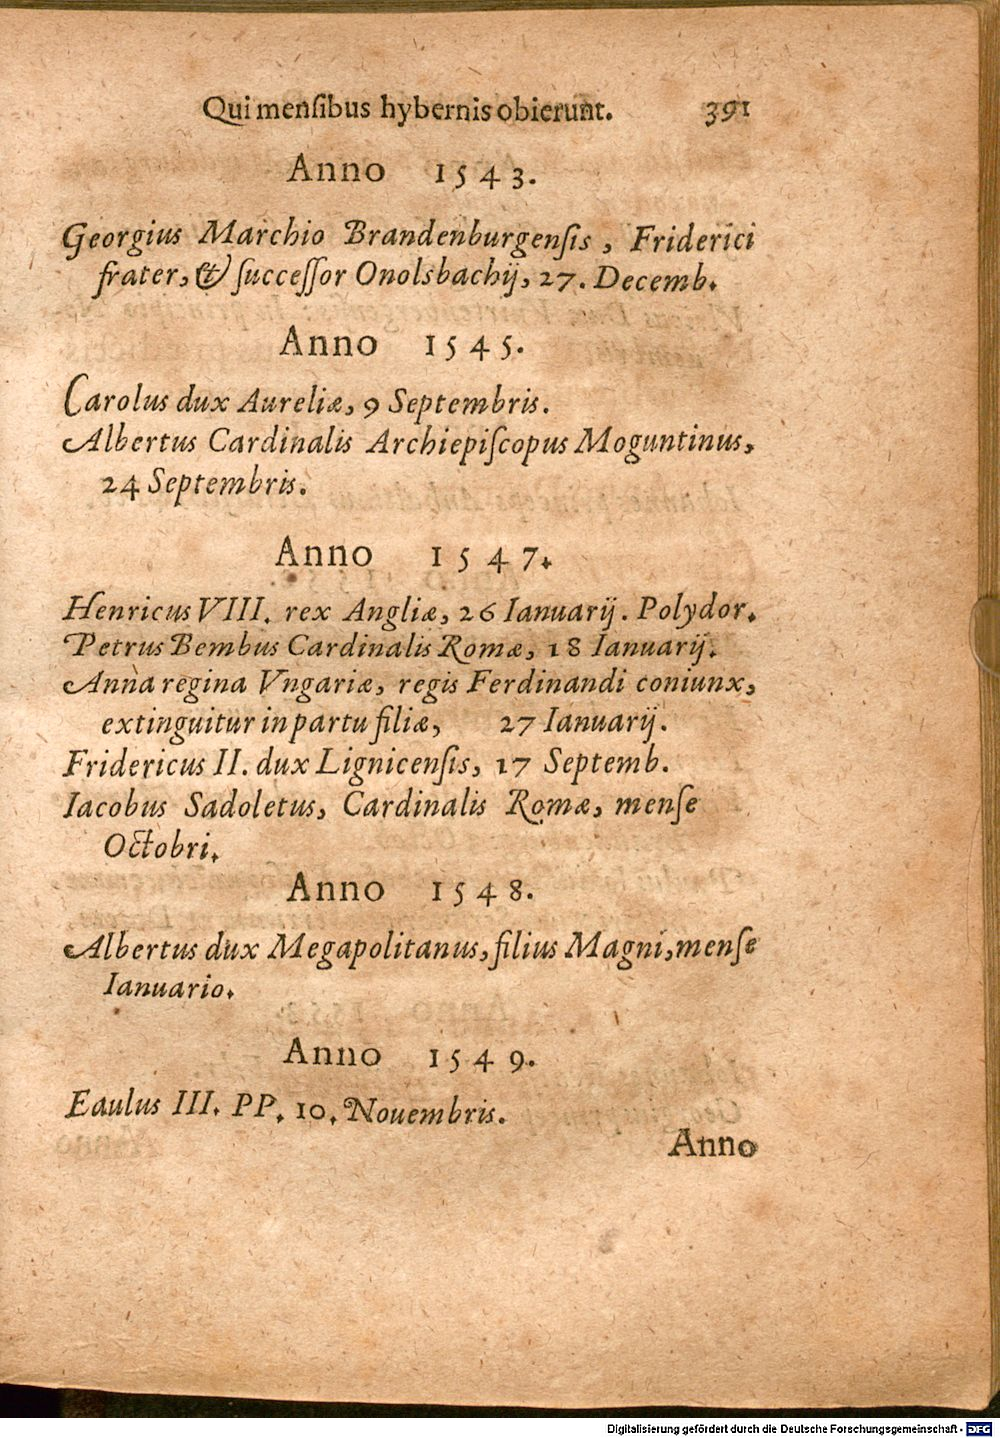 Qui menſibus hybernis obierunt. 391
Anno 1543.
Georgius Marchio Brandenburgenſis, Friderici
frater, & ſucceſſor Onolsbachij, 27. Decemb.
Anno 1545.
Carolus dux Aureliæ, 9 Septembris.
Albertus Cardinalis Archiepiſcopus Moguntinus,
24 Septembris.
Anno 1547.
Henricus VIII. rex Angliæ, 26 Ianuarij. Polydor.
Petrus Bembus Cardinalis Romæ, 18 Ianuarij.
Anna regina Vngariæ, regis Ferdinandi coniunx,
extinguitur in partu filiæ, 27 Ianuarij.
Fridericus II. dux Lignicenſis, 17 Septemb.
Iacobus Sadoletus, Cardinalis Romæ, menſe
Octobri.
Anno 1548.
Albertus dux Megapolitanus, filius Magni, menſe
Ianuario.
Anno 1549.
Eaulus III. PP. 10. Nouembris.
Anno
Digitalisierung gefördert durch die Deutsche Forschungsgemeinschaft - DFG